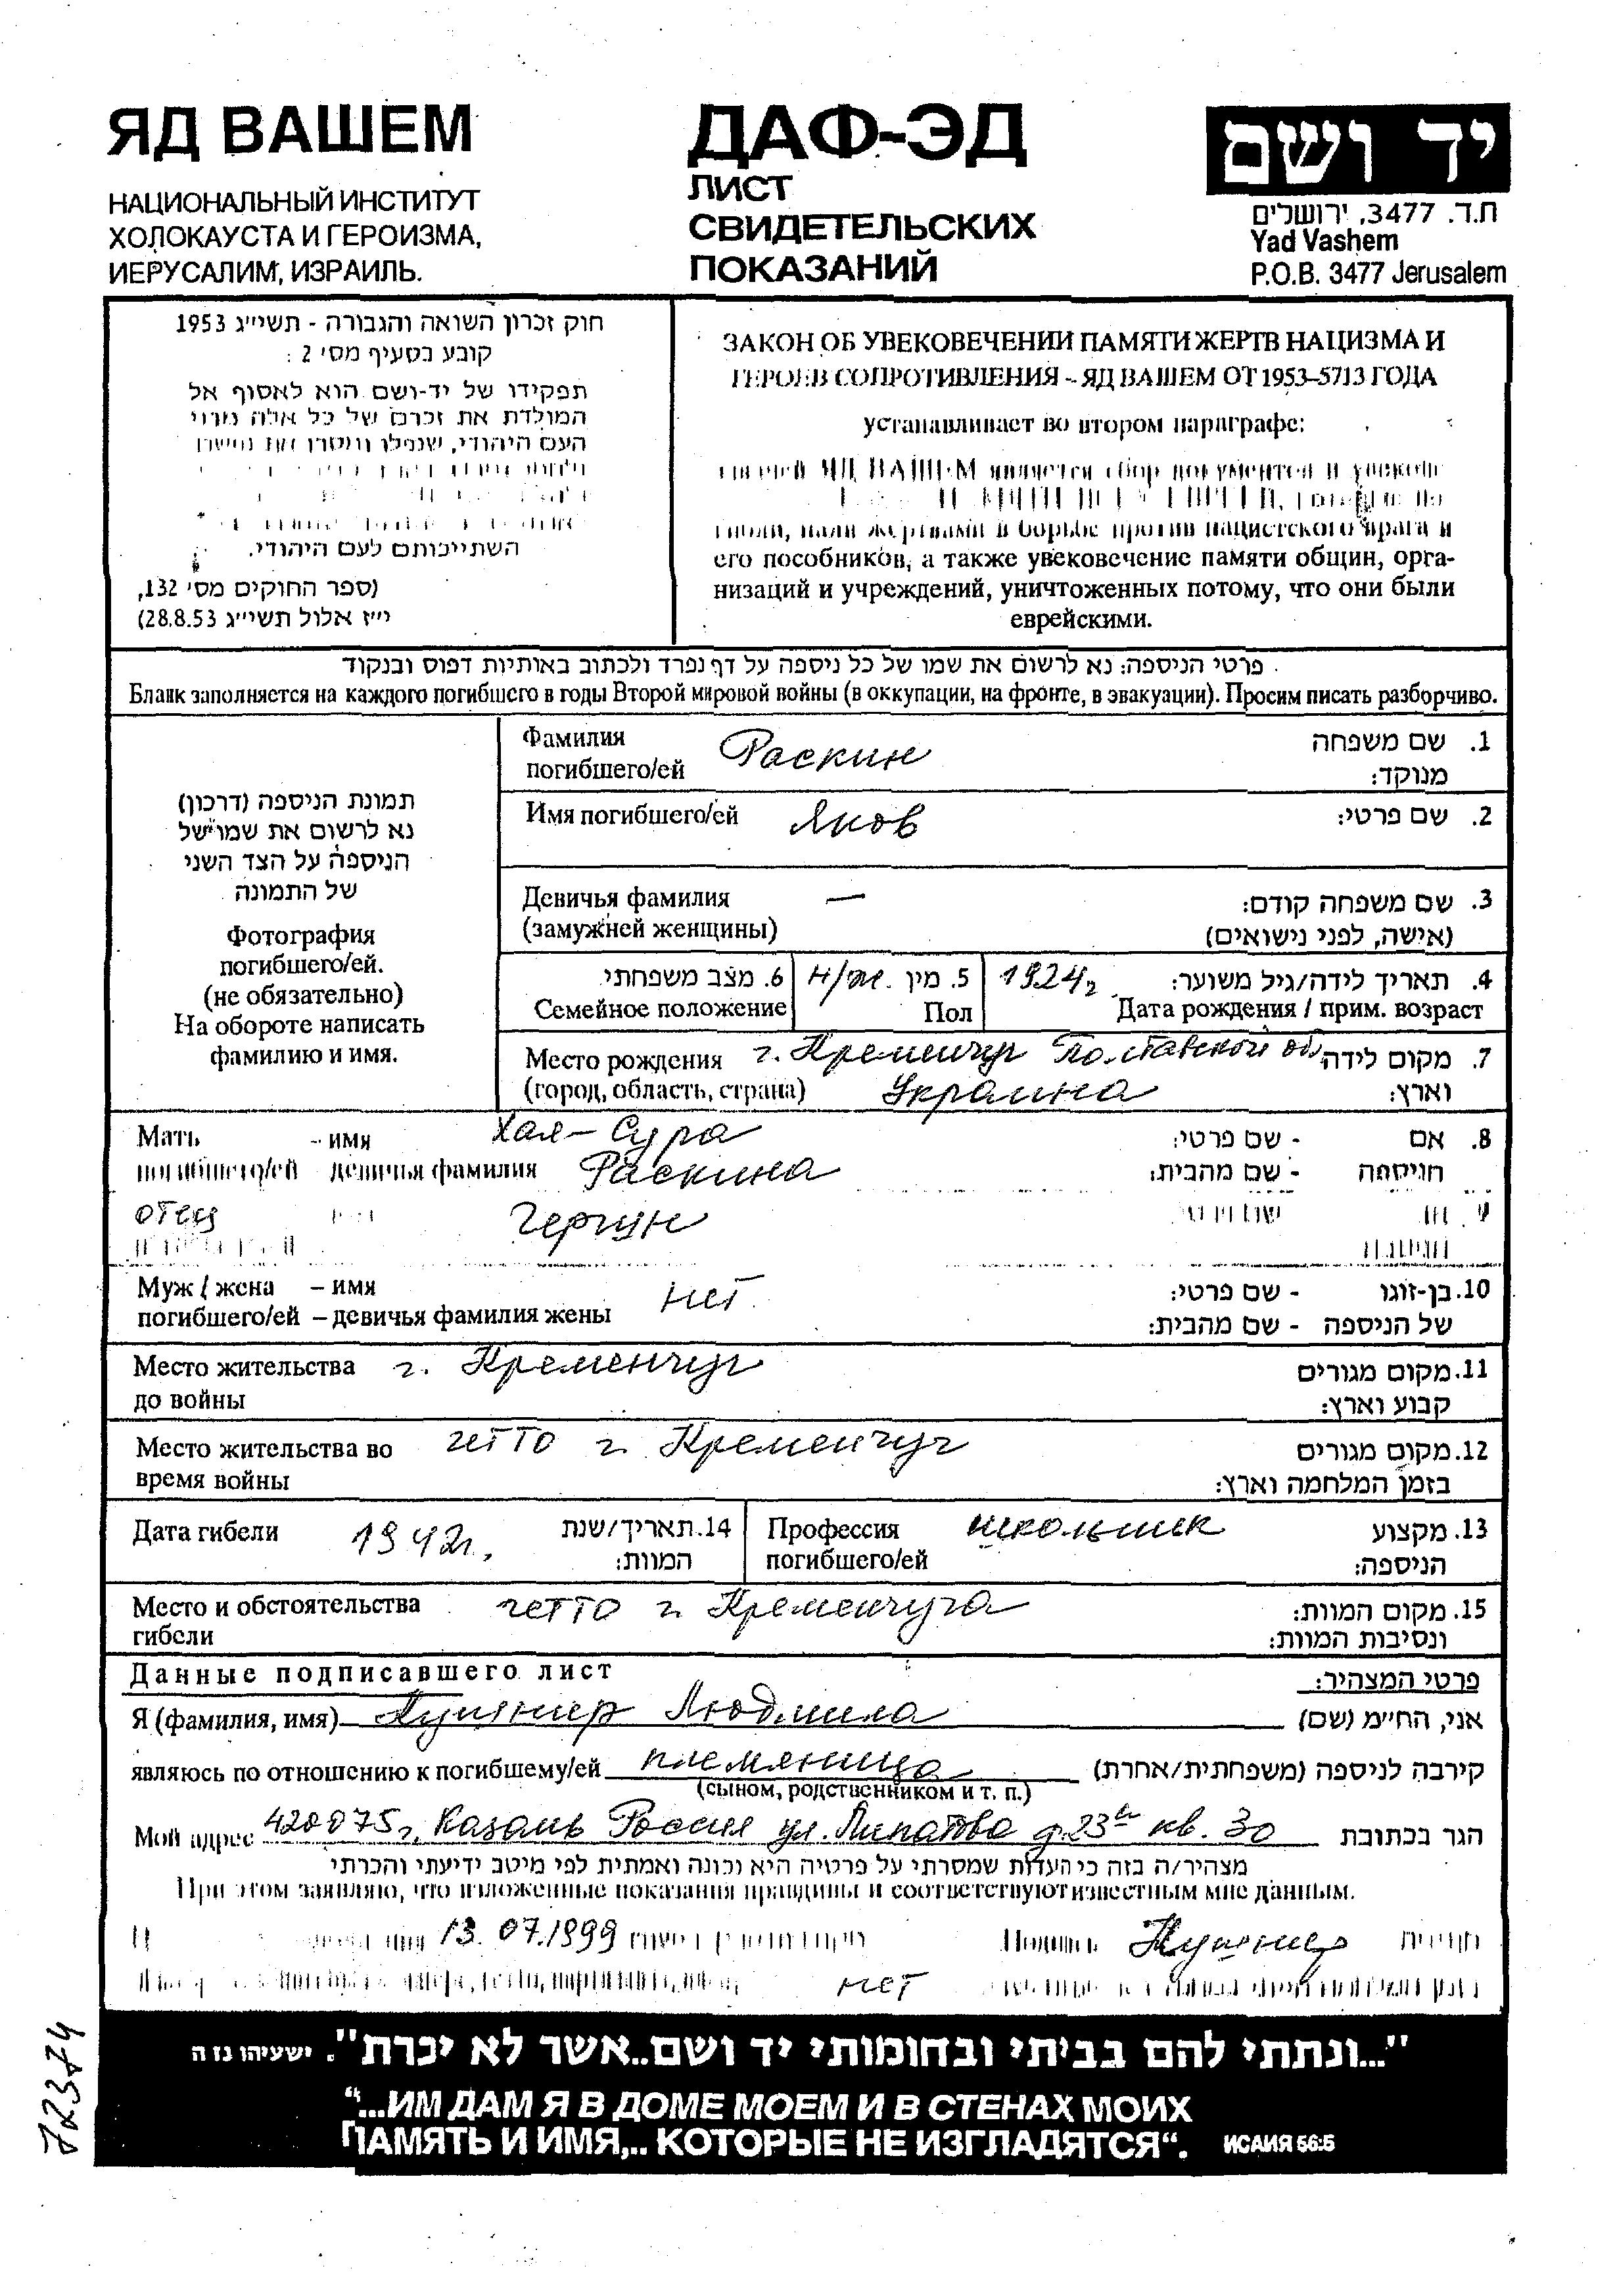 ЯД ВАШЕМ
НАЦИОНАЛЬНЫЙ ИНСТИТУТ
ХОЛОКАУСТА И ГЕРОИЗМА,
ИЕРУСАЛИМ, ИЗРАИЛЬ.
ДАФ-ЭД
ЛИСТ
СВИДЕТЕЛЬСКИХ
ПОКАЗАНИЙ
יד ושם
ת.ד. 3477, ירושלים
Yad Vashem
P.O.B. 3477 Jerusalem
חוק זכרון השואה והגבורה - תשי״ג 1953
קובע בסעיף מס׳ 2 :
תפקידו של יד-ושם הוא לאסוף אל
המולדת את זכרם של כל אלה מבני
העם היהודי, שנפלו ומסרו את נפשם
השתייכותם לעם היהודי.
(ספר החוקים מס׳ 132,
י״ז אלול תשי״ג 28.8.53)
ЗАКОН ОБ УВЕКОВЕЧЕНИИ ПАМЯТИ ЖЕРТВ НАЦИЗМА И
ГЕРОЕВ СОПРОТИВЛЕНИЯ – ЯД ВАШЕМ ОТ 1953–5713 ГОДА
устанавливает во втором параграфе:
ЯД ВАШЕМ является сбор документов и
жертвами в борьбе против нацистского врага и
его пособников, а также увековечение памяти общин, орга-
низаций и учреждений, уничтоженных потому, что они были
еврейскими.
פרטי הניספה: נא לרשום את שמו של כל ניספה על דף נפרד ולכתוב באותיות דפוס ובנקוד
Бланк заполняется на каждого погибшего в годы Второй мировой войны (в оккупации, на фронте, в эвакуации). Просим писать разборчиво.
תמונת הניספה (דרכון)
נא לרשום את שמו של
הניספה על הצד השני
של התמונה
Фотография
погибшего/ей.
(не обязательно)
На обороте написать
фамилию и имя.
Фамилия Раскин 1. שם משפחה
погибшего/ей מנוקד:
Имя погибшего/ей Яков 2. שם פרטי:
Девичья фамилия — 3. שם משפחה קודם:
(замужней женщины) (אישה, לפני נישואים)
6. מצב משפחתי н/ж. 5. מין 1924г 4. תאריך לידה/גיל משוער:
Семейное положение Пол Дата рождения / прим. возраст
Место рождения г. Кременчуг Полтавской об 7. מקום לידה
(город, область, страна) Украина וארץ:
Мать – имя Хая-Сура 8. אם - שם פרטי:
погибшего/ей – девичья фамилия Раскина הניספה - שם מהבית:
отец Гершун
Муж / жена – имя нет 10. בן-זוגו - שם פרטי:
погибшего/ей – девичья фамилия жены של הניספה - שם מהבית:
Место жительства г. Кременчуг 11. מקום מגורים
до войны קבוע וארץ:
Место жительства во гетто г. Кременчуг 12. מקום מגורים
время войны בזמן המלחמה וארץ:
Дата гибели 1942г. 14. תאריך/שנת Профессия школьник 13. מקצוע
המוות: погибшего/ей הניספה:
Место и обстоятельства гетто г. Кременчуга 15. מקום המוות:
гибели ונסיבות המוות:
Данные подписавшего лист פרטי המצהיר:
Я (фамилия, имя) Кушнир Людмила אני, החי״מ (שם)
являюсь по отношению к погибшему/ей племянница קירבה לניספה (משפחתית/אחרת)
(сыном, родственником и т. п.)
Мой адрес 420075 г. Казань Россия ул. Липатова д.23 кв. 30 הגר בכתובת
מצהיר/ה בזה כי העדות שמסרתי על פרטיה היא נכונה ואמתית לפי מיטב ידיעתי והכרתי
При этом заявляю, что изложенные показания правдивы и соответствуют известным мне данным.
13.07.1999 Подпись Кушнир
нет
"...ונתתי להם בביתי ובחומותי יד ושם..אשר לא יכרת". ישעיהו נו ה
“...ИМ ДАМ Я В ДОМЕ МОЕМ И В СТЕНАХ МОИХ
ПАМЯТЬ И ИМЯ,.. КОТОРЫЕ НЕ ИЗГЛАДЯТСЯ“. ИСАИЯ 56:5
72374